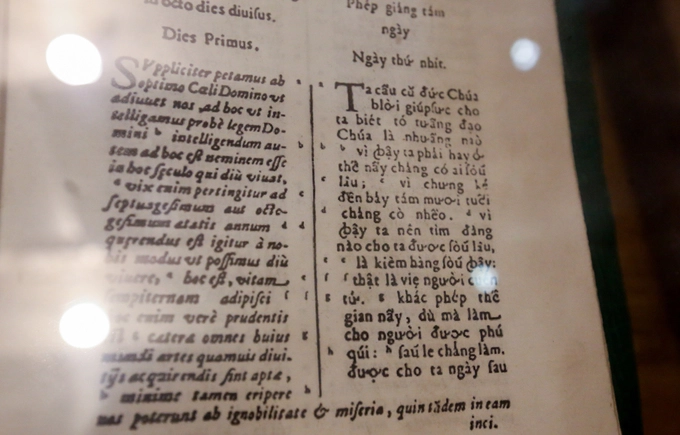 in octo dies diuiſus.
Dies Primus.
SVppliciter petamus ab
optimo Cæli Domino vt
adiuuet nos, ad hoc vt in-
telligamus probè legem Do-
mini ᵇ intelligendum au-
tem ad hoc eſt neminem eſſe
in hoc ſeculo qui diù viuat,
ᶜ vix enim pertingitur ad
ſeptuageſimum aut octo-
geſimum ætatis annum ᵈ
quærendus eſt igitur à no-
bis modus vt poſſimus diù
viuere, ᵉ hoc eſt, vitam
ſempiternam adipiſci
hoc enim verè prudentis
eſt ᵍ cætera omnes huius
mundi artes quamuis diui-
tijs acquirendis ſint aptæ,
ʰ minime tamen eripere
Phép giảng tám
ngày
Ngày thứ nhít.
Ta cầu cũ đức Chúa
blời giúpſức cho
ta biét tỏ tưầng đạo
Chúa là nhưầng nào
ᵇ vì ꞗậy ta phải hay ở
thế nầy chảng có ai ſóů
lâu; ᶜ vì chưng kể
đến bảy tám mươi tuỏi
chảng cò nhềo. ᵈ vì
ꞗậy ta nên tìm đàng
nào cho ta được ſóů lâu,
ᵉ là kiẻm hàng ſóů ꞗậy:
ᶠ thật là viẹ người
tử. ᵍ khác phép thế
gian nầy, dù mà làm
cho người được phú
qúi: ʰ ſaů le chảng làm
được cho ta ngày ſau
nas poterunt ab ignobilitate & miſeria, quin tãdem in eam
inci.